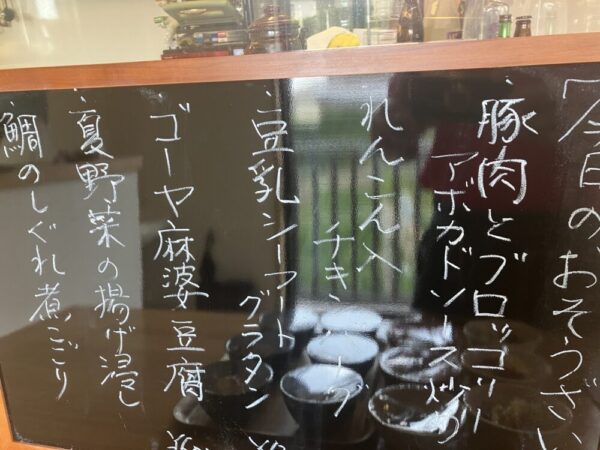 今日のおそうざい
・豚肉とブロッコリー
アボカドソース炒め
・れんこん入
チキンバーグ
・豆乳シーフード
グラタン
・ゴーヤ麻婆豆腐
・夏野菜の揚げ浸し
・鯛のしぐれ煮こごり